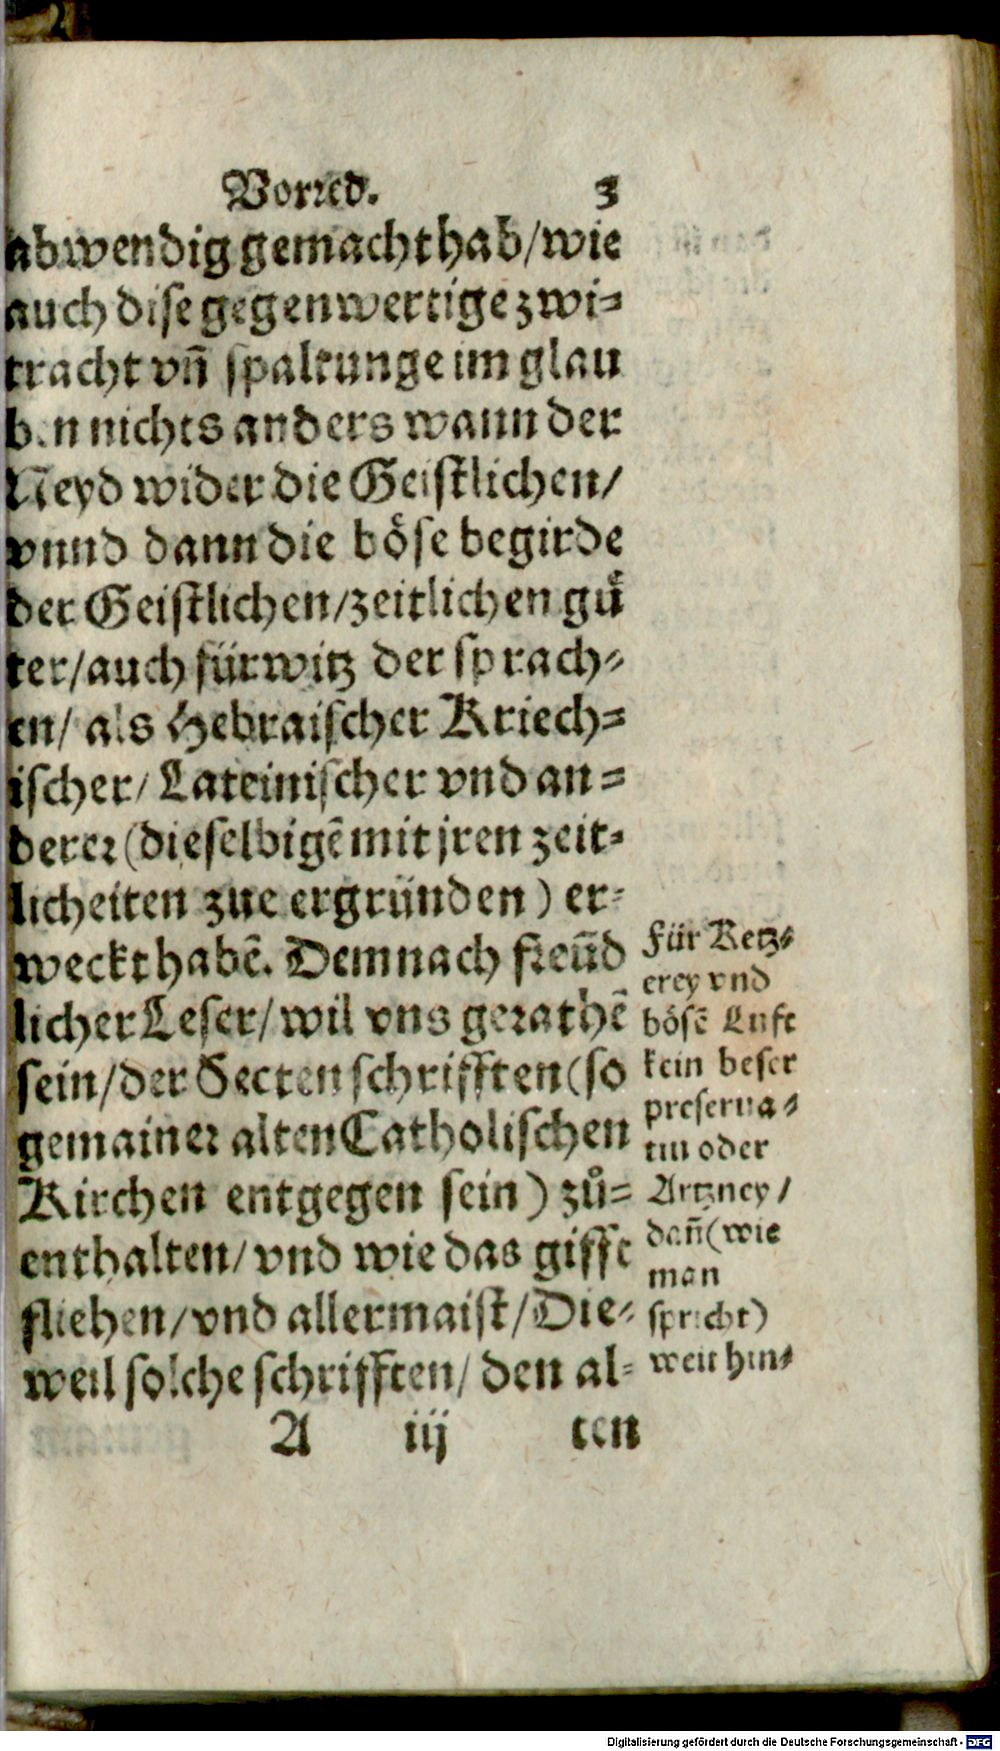 Vorred. 3
abwendig gemacht hab/wie
auch dise gegenwertige zwi-
tracht vñ spaltunge im glau
ben nichts anders wann der
Neyd wider die Geistlichen/
vnnd dann die böse begirde
der Geistlichen/zeitlichen gů
ter/auch fürwitz der sprach-
en/ als Hebraischer Kriech-
ischer/ Lateinischer vnd an-
derer (dieselbigẽ mit jren zeit-
licheiten zue ergründen) er-
weckt habẽ. Demnach freũd
licher Leser/ wil vns gerathẽ
sein/der Secten schrifften (so
gemainer alten Catholischen
Kirchen entgegen sein) zů-
enthalten/ vnd wie das gifft
fliehen/vnd allermaist/ Die-
weil solche schrifften/ den al-
A iij ten
Für Ketz-
erey vnd
bösẽ Lufft
kein beser
preserua-
tiu oder
Artzney/
dañ (wie
man
spricht)
weit hin-
Digitalisierung gefördert durch die Deutsche Forschungsgemeinschaft - DFG